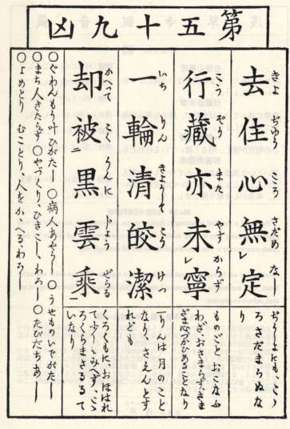 第五十九凶
去住心無定
きよ ぢゆう さだめ なし
ぢうしよにも、こゝ
ろさだまらぬな
り
行藏亦未寧
こう ざう また やす からず
ものごと おこなふ
わざ、おさまらず、さま
ざま心づかひあることなり
一輪清皎潔
いち りん こう けつ
一りんは月のこと
なり、さえんとす
れども
却被黒雲乗
かへつて こく うんに じよう ぜらる
くろくもに、おほはれ
て、少しもみへず、こゝ
ろくらまさるるて
いなり
○ぐわんもう叶ひがたし ○病人あやうし ○うせものいでがたし
○まち人きたらず ○やづくり、ひきこし、わろし ○たびだちあし
○よめとり むことり、人をかゝへるわろし